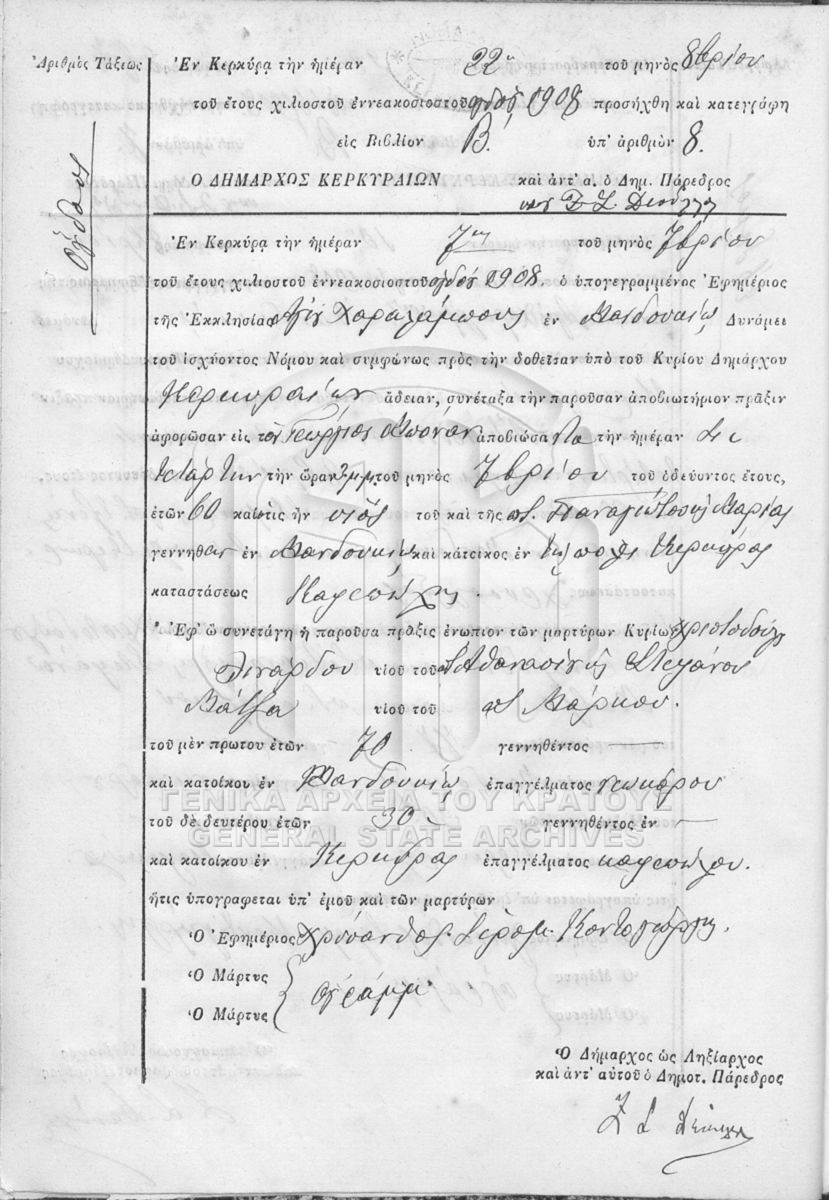 Ἀριθμὸς Τάξεως
Ἐν Κερκύρᾳ τὴν ἡμέραν 22 τοῦ μηνὸς 8βρίου
τοῦ ἔτους χιλιοστοῦ ἐννεακοσιοστοῦ 1908 προσήχθη καὶ κατεγράφη
εἰς Βιβλίον Β. ὑπ' ἀριθμὸν 8.
Ο ΔΗΜΑΡΧΟΣ ΚΕΡΚΥΡΑΙΩΝ καὶ ἀντ' α. ὁ Δημ. Πάρεδρος
Ὄγδοος
Ἐν Κερκύρᾳ τὴν ἡμέραν 7ην τοῦ μηνὸς 7βρίου
τοῦ ἔτους χιλιοστοῦ ἐννεακοσιοστοῦ 1908. ὁ ὑπογεγραμμένος Ἐφημέριος
τῆς Ἐκκλησίας Ἁγίου Χαραλάμπους ἐν Μανδουκίῳ Δυνάμει
τοῦ ἰσχύοντος Νόμου καὶ συμφώνως πρὸς τὴν δοθεῖσαν ὑπὸ τοῦ Κυρίου Δημάρχου
Κερκυραίων ἄδειαν, συνέταξα τὴν παροῦσαν ἀποβιωτήριον πρᾶξιν
ἀφορῶσαν εἰς τὸν Γεώργιον ἀποβιώσαντα τὴν ἡμέραν
τετάρτην τὴν ὥραν 3 μ.μ. τοῦ μηνὸς 7βρίου τοῦ ὁδεύοντος ἔτους,
ἐτῶν 60 καὶ ὅστις ἦν υἱὸς τοῦ καὶ τῆς π. Παναγιώτου καὶ Μαρίας
γεννηθεὶς ἐν Μανδουκίῳ καὶ κάτοικος ἐν τῇ πόλει Κερκύρας
καταστάσεως Καφεπώλης.
Ἐφ' ᾧ συνετάγη ἡ παροῦσα πρᾶξις ἐνώπιον τῶν μαρτύρων Κυρίων Χριστοδούλου
Λινάρδου υἱοῦ τοῦ Ἀθανασίου καὶ Στεφάνου
υἱοῦ τοῦ π. Μάρκου.
τοῦ μὲν πρώτου ἐτῶν 70 γεννηθέντος
καὶ κατοίκου ἐν Μανδουκίῳ ἐπαγγέλματος νεωκόρου
τοῦ δὲ δευτέρου ἐτῶν 30 γεννηθέντος ἐν
καὶ κατοίκου ἐν Κερκύρας ἐπαγγέλματος καφεπώλου.
ἥτις ὑπογράφεται ὑπ' ἐμοῦ καὶ τῶν μαρτύρων
Ὁ Ἐφημέριος Χρύσανθος Ἱερομ. Κοντογιώργης.
Ὁ Μάρτυς
Ὁ Μάρτυς
ἀγράμμ.
Ὁ Δήμαρχος ὡς Ληξίαρχος
καὶ ἀντ' αὐτοῦ ὁ Δημοτ. Πάρεδρος
ΓΕΝΙΚΑ ΑΡΧΕΙΑ ΤΟΥ ΚΡΑΤΟΥΣ
GENERAL STATE ARCHIVES